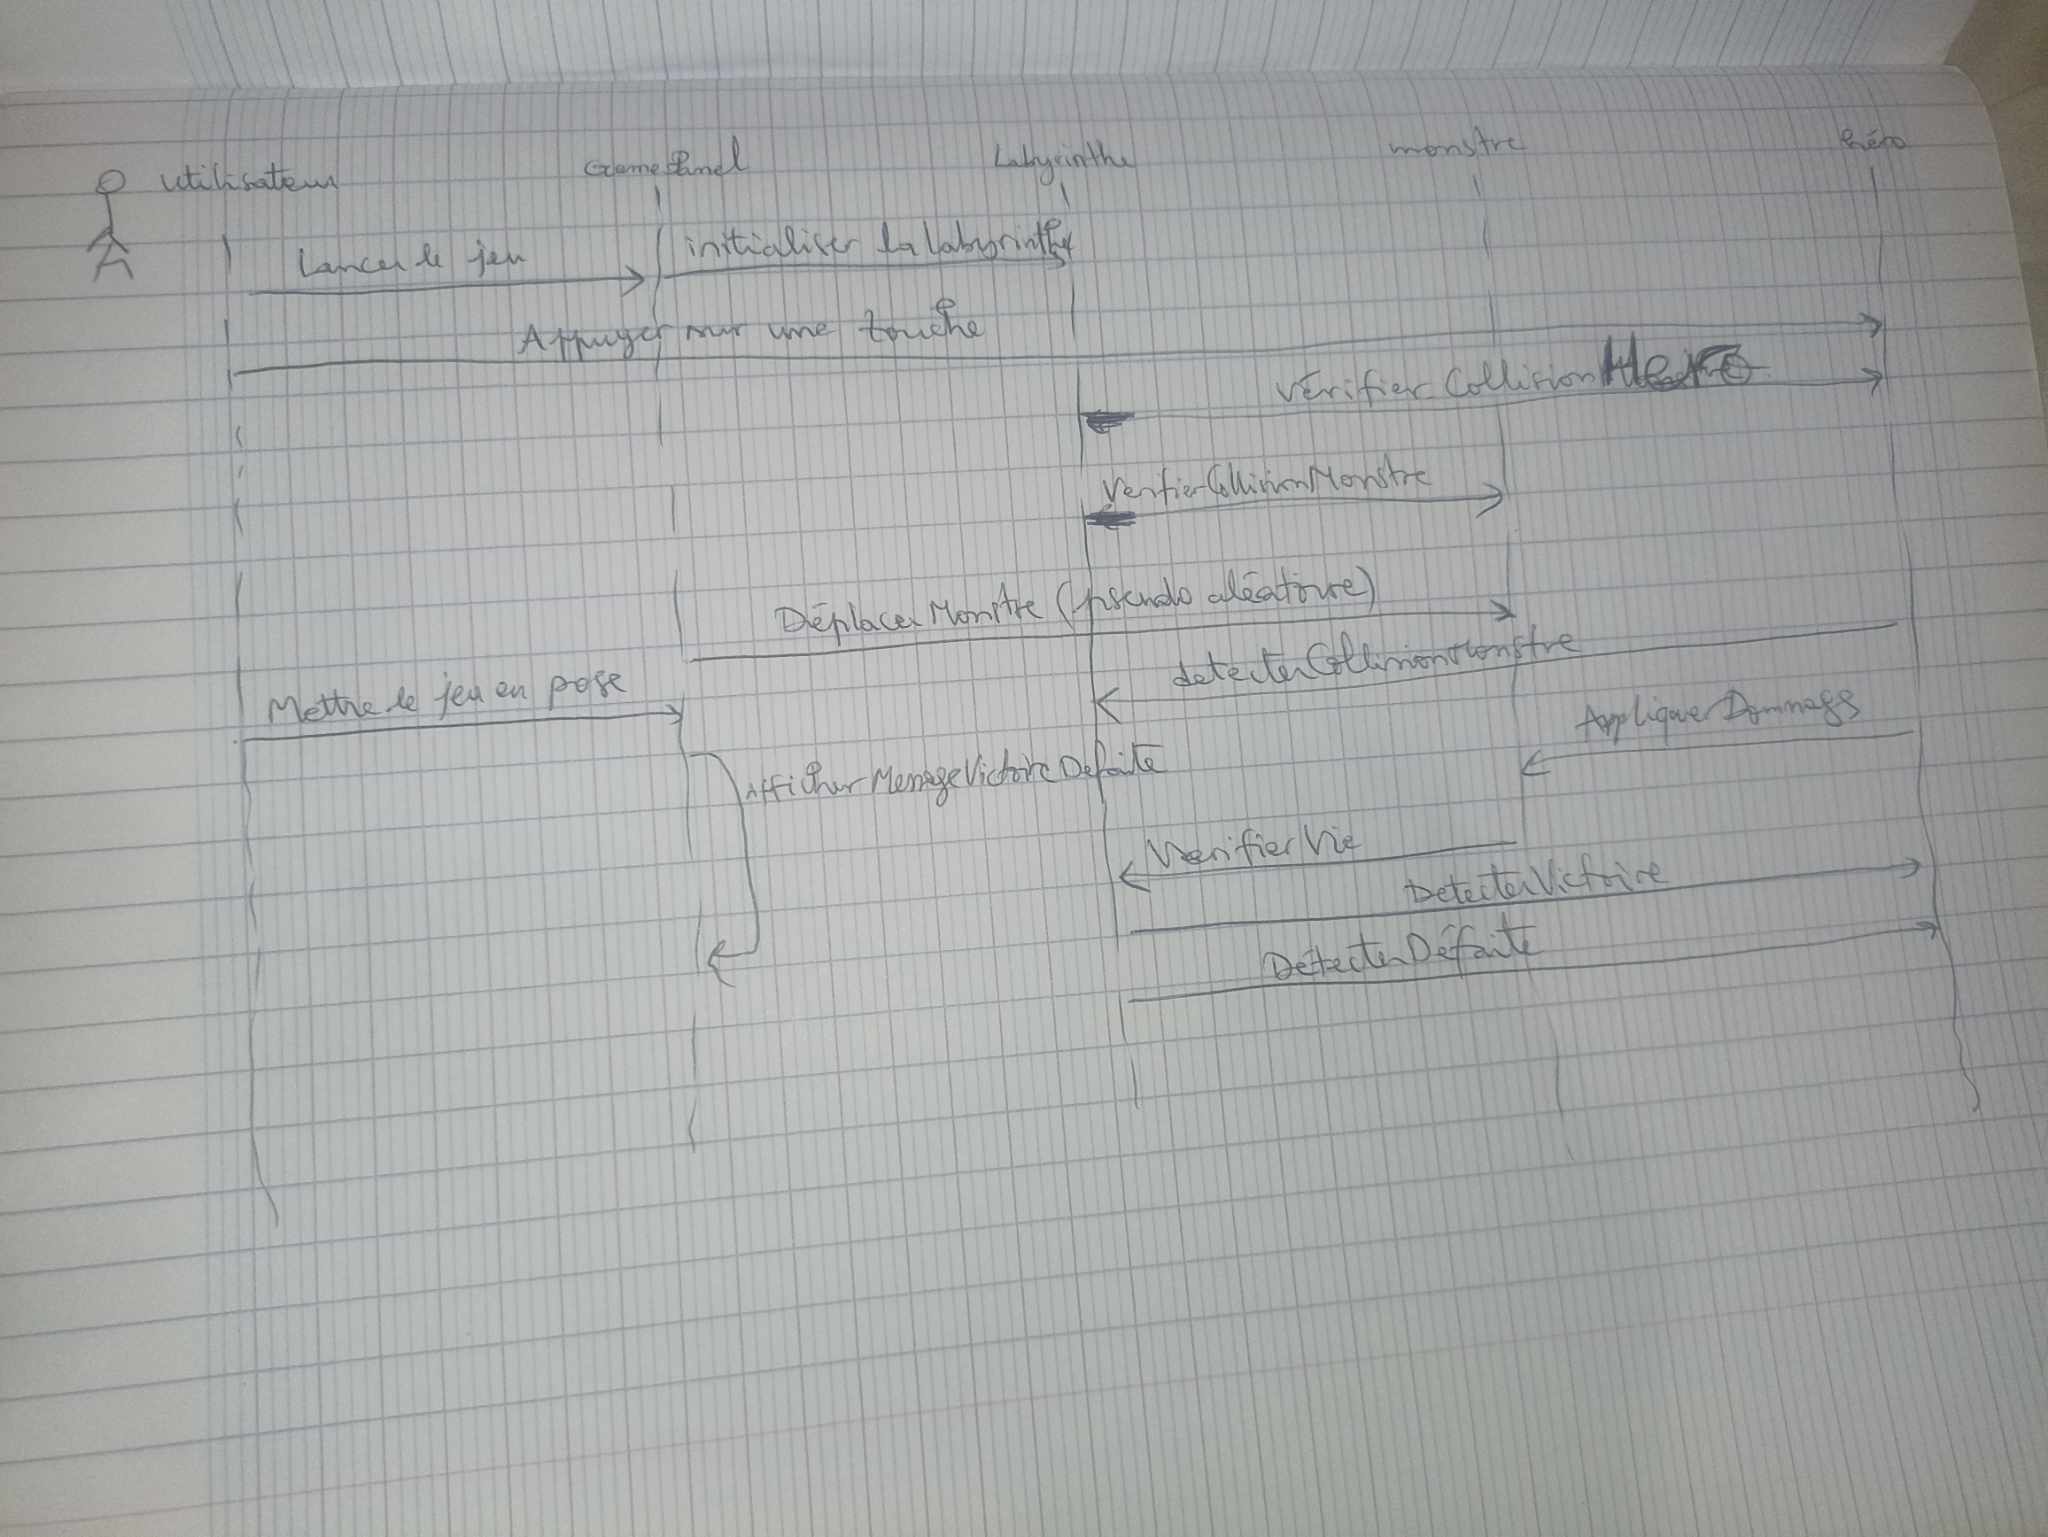 utilisateur
GamePanel
Labyrinthe
monstre
héro
Lancer le jeu
initialiser la labyrinthe
Appuyer sur une touche
Vérifier CollisionHero
VerifierCollisionMonstre
Déplacer Monstre (pseudo aléatoire)
detecterCollisionMonstre
Mettre le jeu en pose
AppliquerDommags
AfficherMessageVictoireDefaite
VerifierVie
DetecterVictoire
DétecterDéfaite